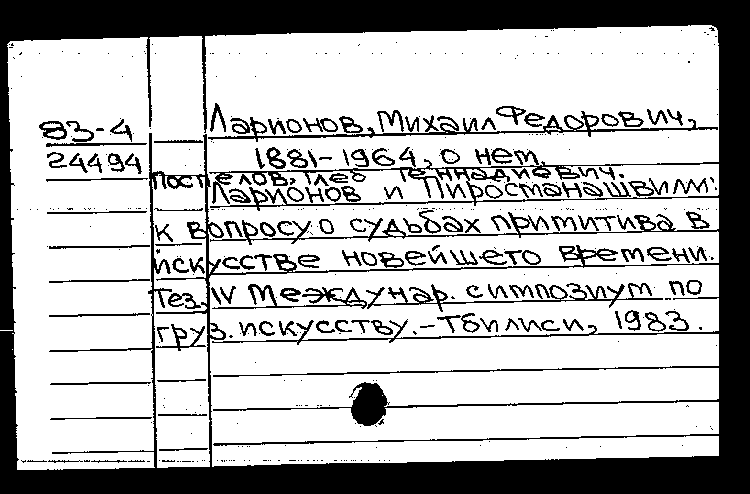 83-4
24494
Ларионов, Михаил Федорович,
1881-1964, о нем.
Поспелов, Глеб Геннадиевич.
Ларионов и Пиросманашвили:
к вопросу о судьбах примитива в
искусстве новейшего времени.
Тез. IV Междунар. симпозиум по
груз. искусству. - Тбилиси, 1983.